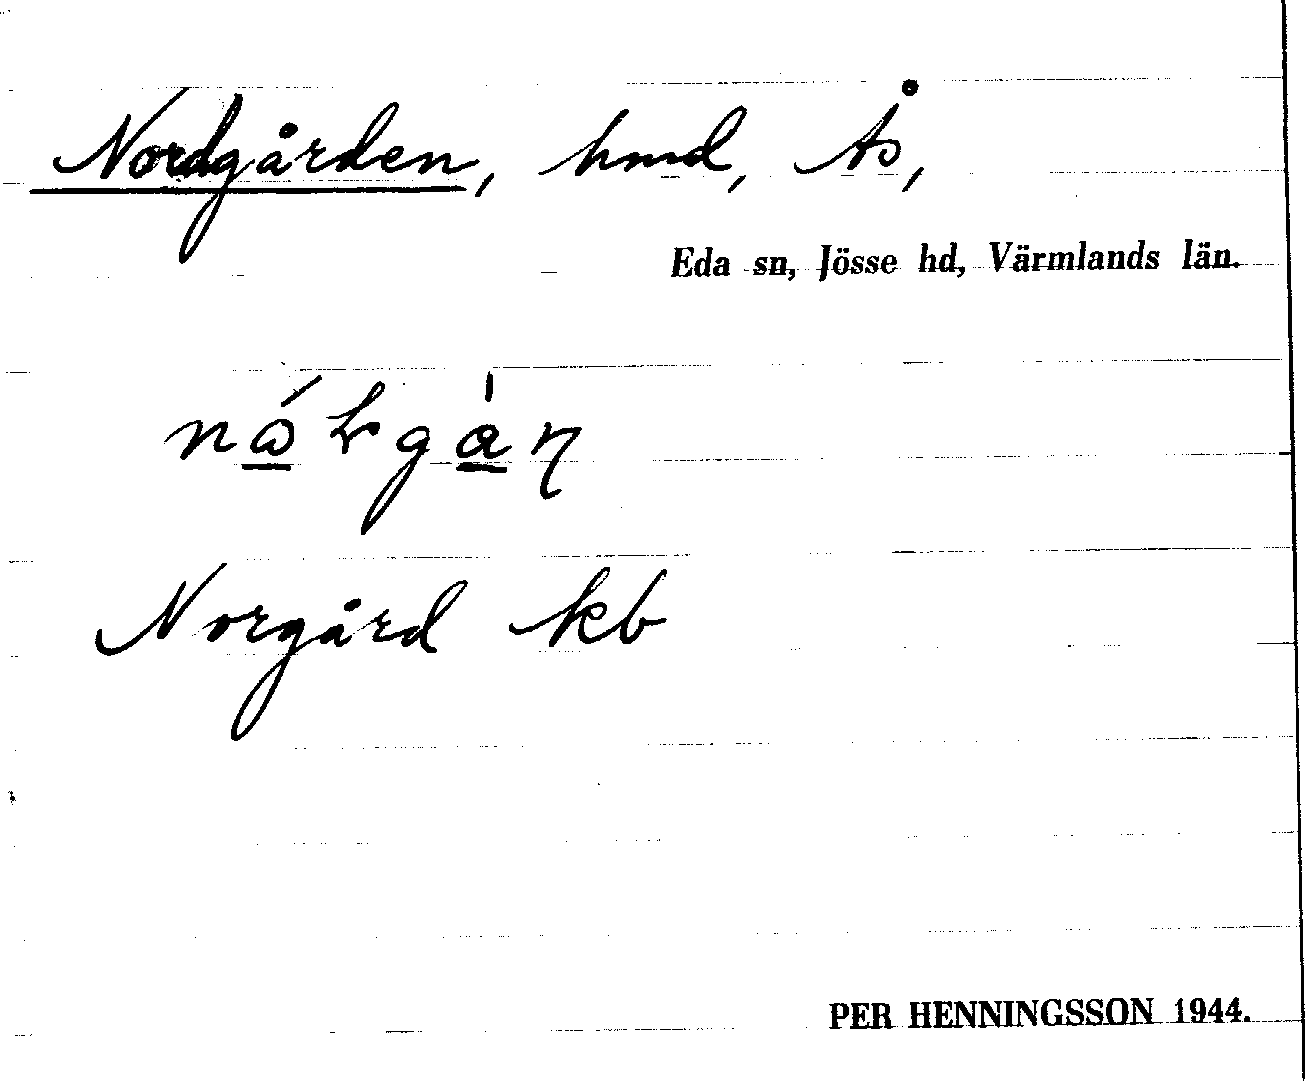 Nordgården, hmd, Ås,
Eda sn, Jösse hd, Värmlands län.
Norgård kb
PER HENNINGSSON 1944.